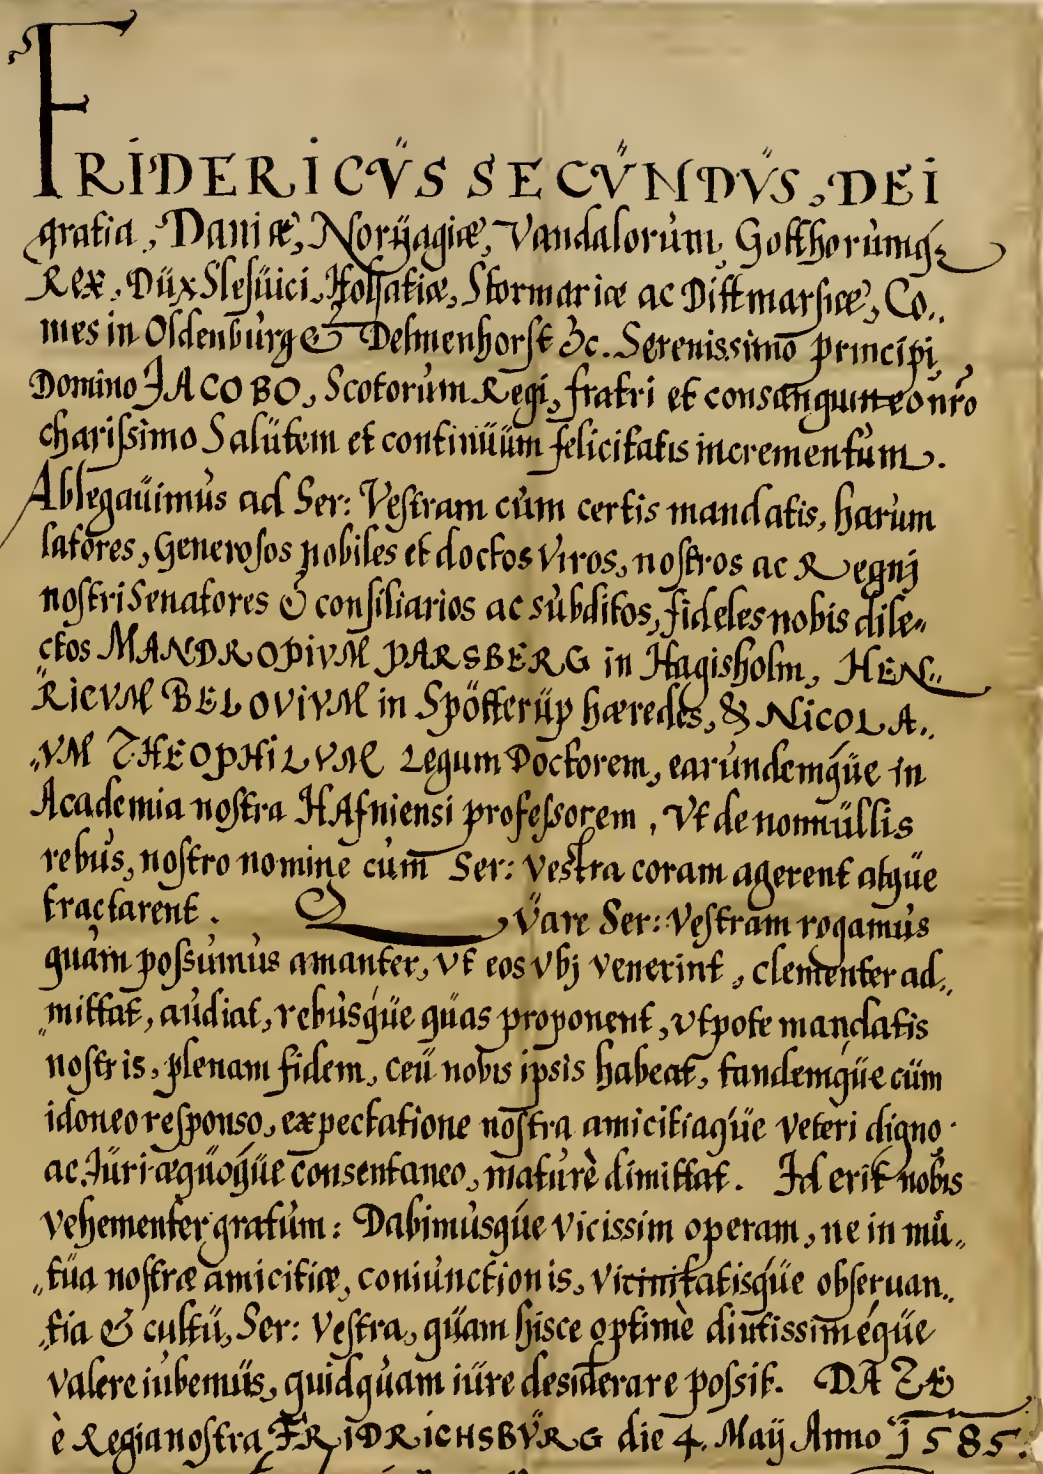 FRIDERICVS SECVNDVS, DEI
gratia, Daniæ, Noruagiæ, Vandalorum, Gotthorumq;
Rex, Dux Slesuici, Holsatiæ, Stormariæ ac Dittmarsiæ, Co,,
mes in Oldenburg & Delmenhorst &c. Serenissimo principi,
Domino JACOBO, Scotorum Regi, fratri et consanguineo nrō
charissimo Salutem et continuum felicitatis incrementum.
Ablegauimus ad Ser: Vestram cum certis mandatis, harum
latores, Generosos nobiles et doctos viros, nostros ac Regnj
nostri Senatores & consiliarios ac subditos, fideles nobis dile,,
ctos MANDROPIVM PARSBERG in Hagisholm, HEN,,
RICVM BELOVIVM in Spötterup hæredes, & NICOLA,,
,,VM THEOPHILVM Legum Doctorem, earundemque in
Academia nostra HAfniensi professorem, Vt de nonnullis
rebus, nostro nomine cum Ser: vestra coram agerent atque
tractarent. Quare Ser: Vestram rogamus
quam possumus amanter, vt eos vbj venerint, clementer ad,,
,,mittat, audiat, rebusque quas proponent, vtpote mandatis
nostris, plenam fidem, ceu nobis ipsis habeat, tandemque cum
idoneo responso, expectatione nostra amicitiaque veteri digno
ac Juri æquoque consentaneo, maturè dimittat. Id erit nobis
vehementer gratum: Dabimusque vicissim operam, ne in mu,,
,,tua nostræ amicitiæ, coniunctionis, vicinitatisque obseruan,,
,,tia & cultu, Ser: Vestra, quam hisce optimè diutissiméque
valere iubemus, quidquam iure desiderare possit. DATÆ
è Regia nostra FRIDRICHSBVRG die 4. Maij Anno 1585.